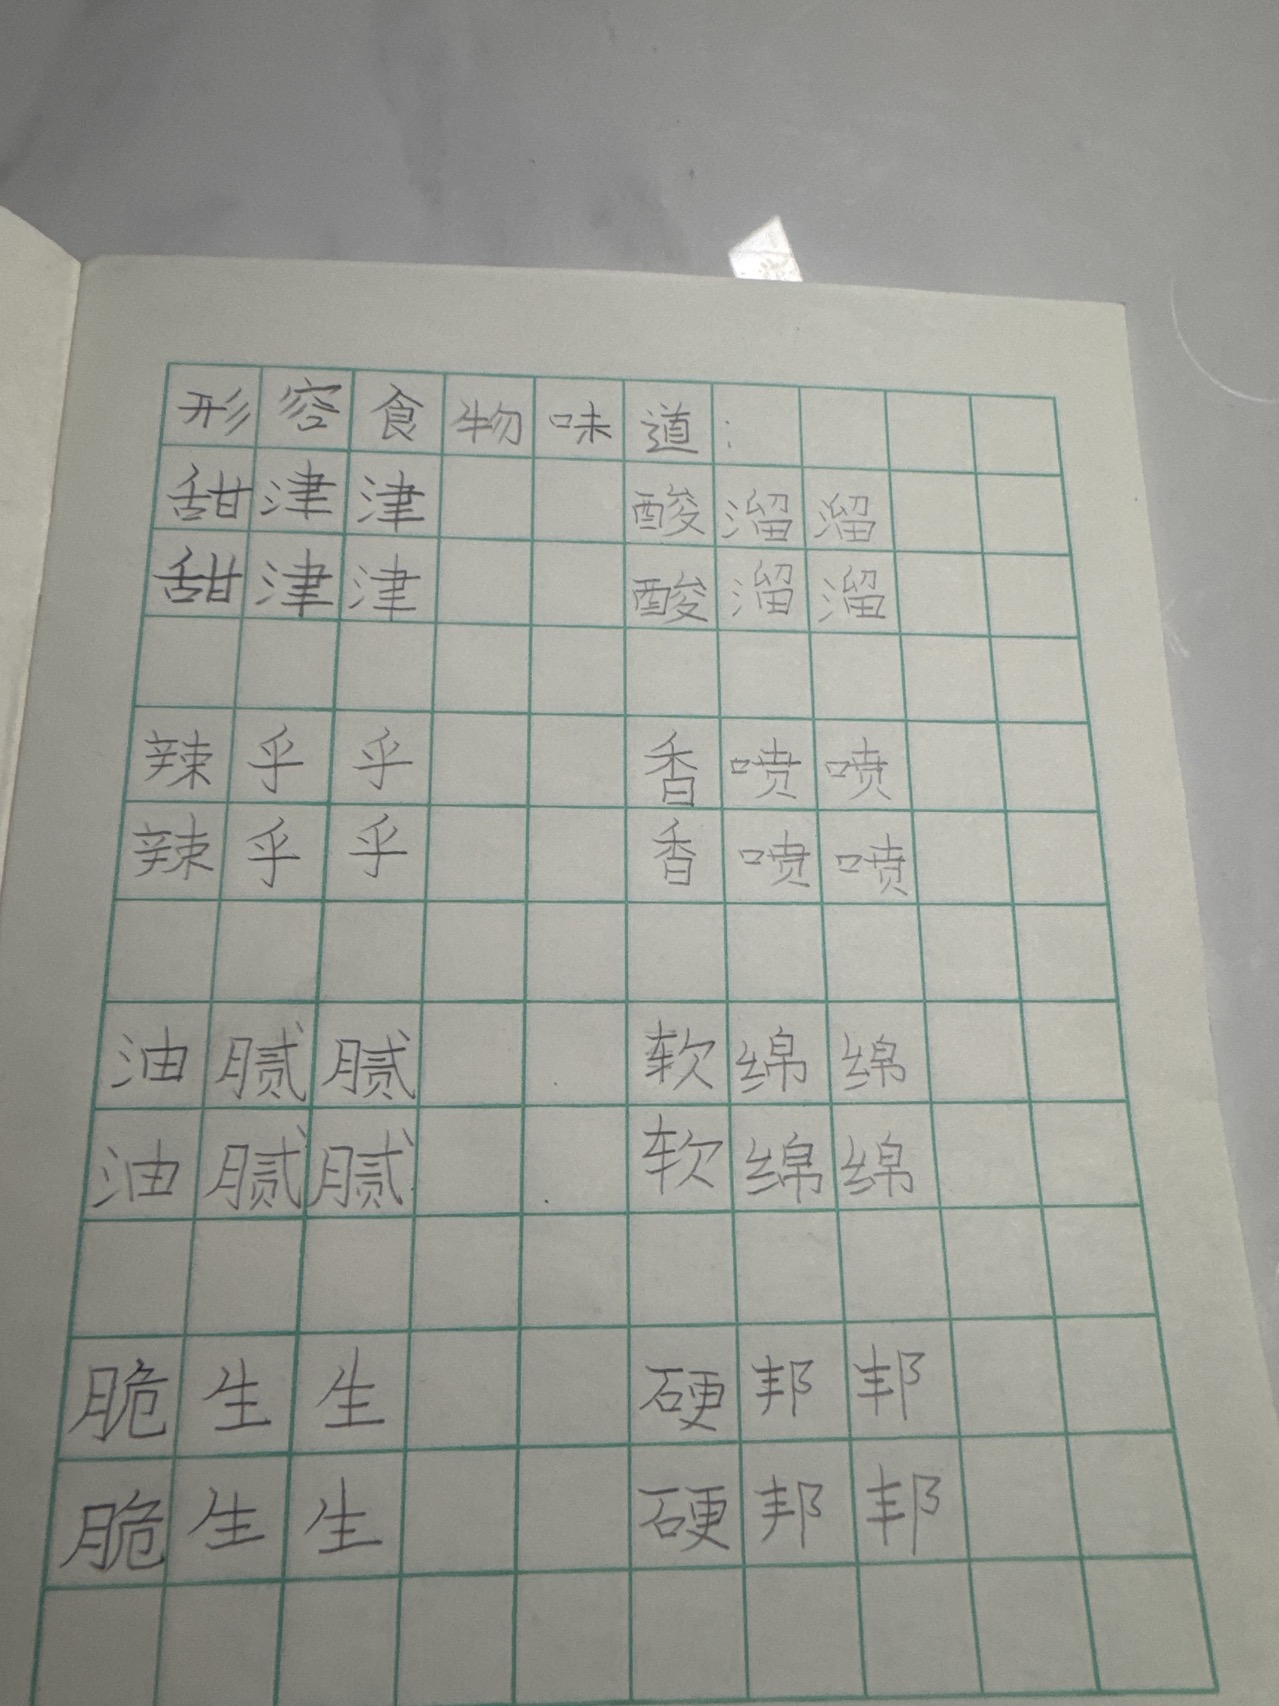 形容食物味道：
甜津津 酸溜溜
甜津津 酸溜溜
辣乎乎 香喷喷
辣乎乎 香喷喷
油腻腻 软绵绵
油腻腻 软绵绵
脆生生 硬邦邦
脆生生 硬邦邦